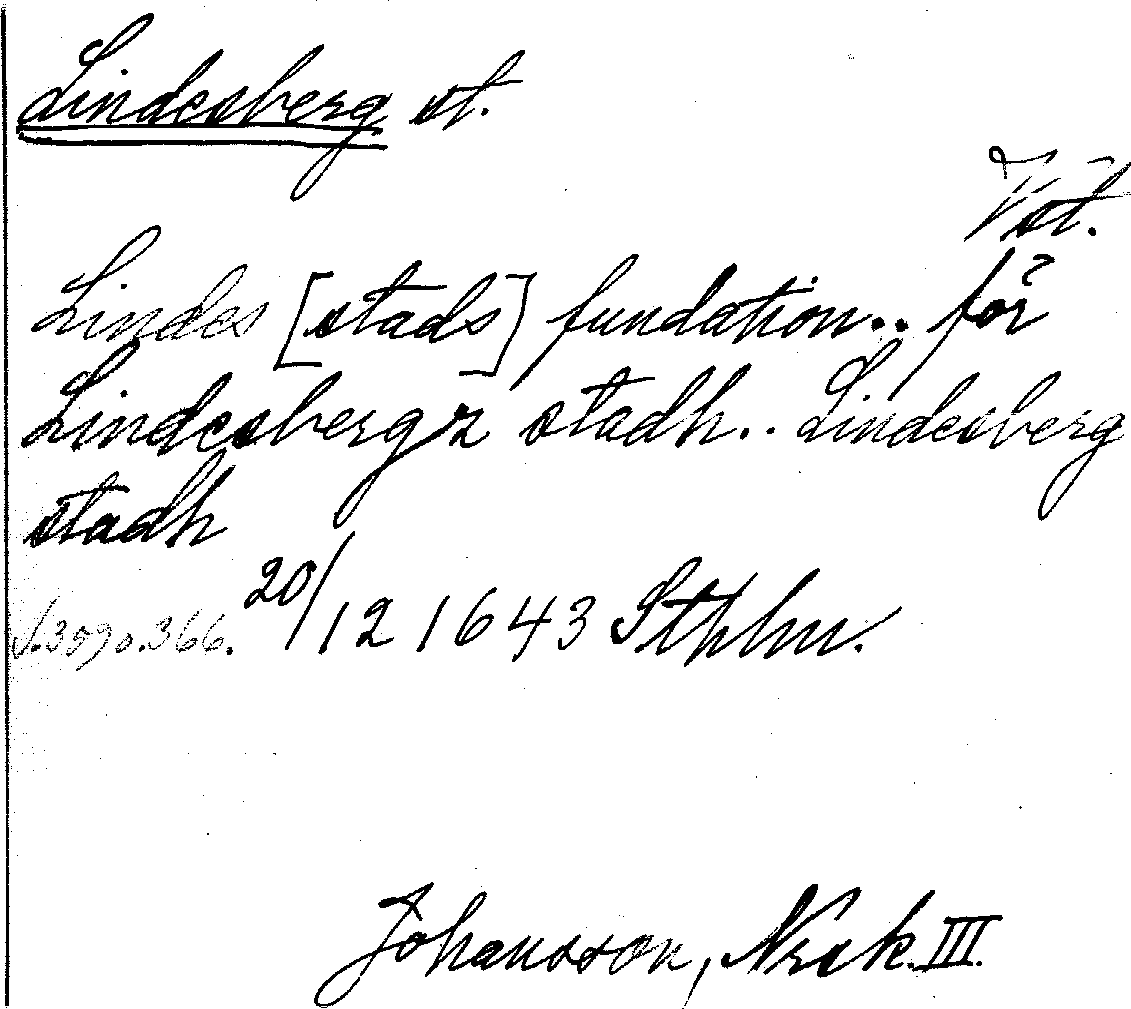 Lindesberg st.
Vst.
Lindes [stads] fundation.. för
Lindesbergz stadh.. Lindesberg
stadh
20/12 1643 Sthlm.
Johansson, Nrsk. III.